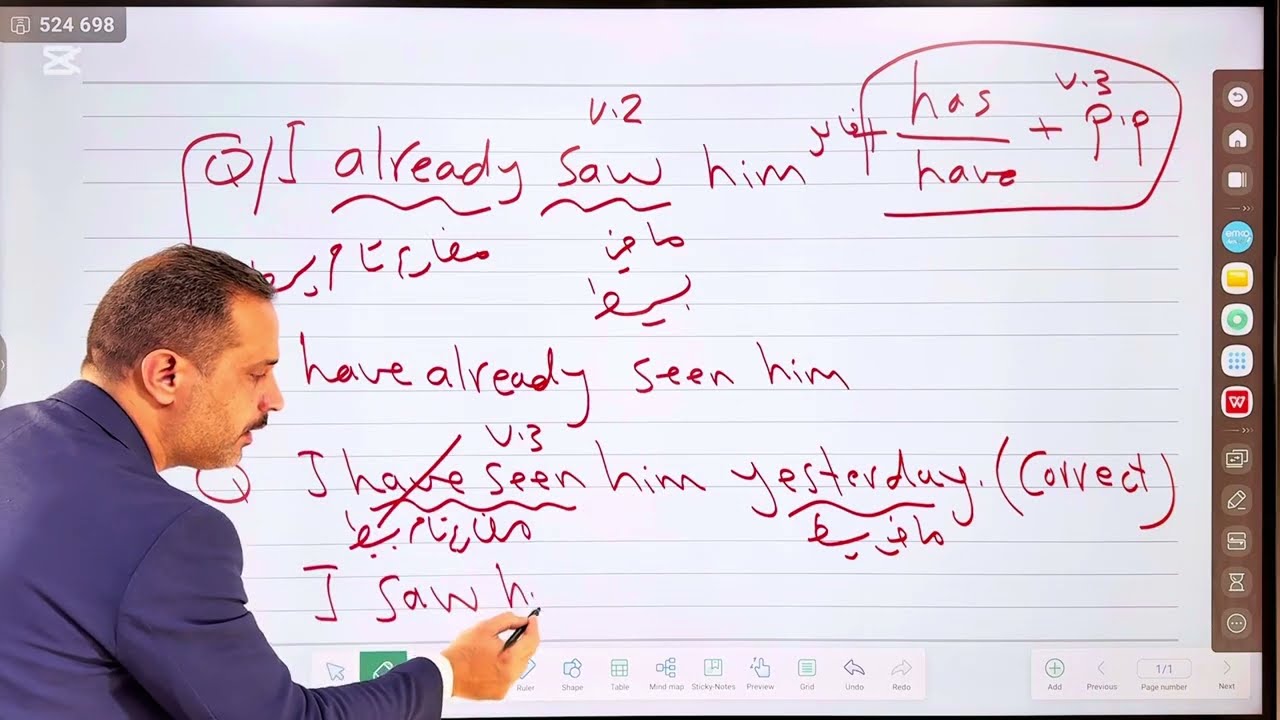 524 698
v.2
Q/ I already saw him فاعل + has / have + p.p
v.3
مضارع تام ماضي
بسيط
have already seen him
v.3
Q I have seen him yesterday. (Correct)
مضارع تام بسيط ماضي بسيط
I saw h
Ruler Shape Table Mind map Sticky-Notes Preview Grid Undo Redo Add Previous 1/1 Page number Next
emko
W